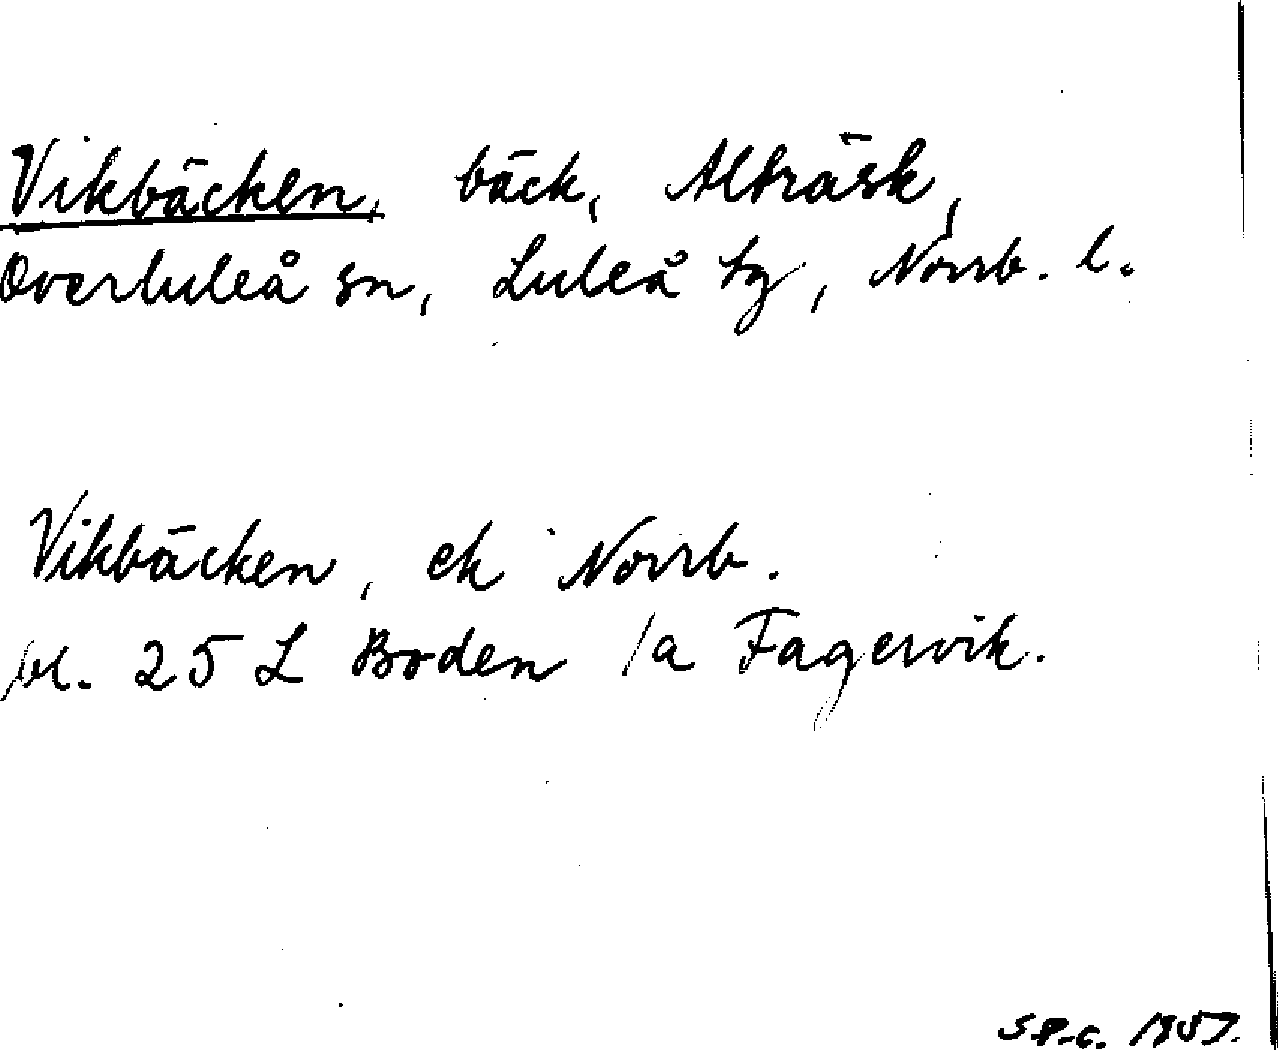 Vikbäcken, bäck, Alträsk,
Överluleå sn, Luleå tg, Norrb. l.
Vikbäcken, ek Norrb.
bl. 25 L Boden /a Fagervik.
S.P-c. 1957.